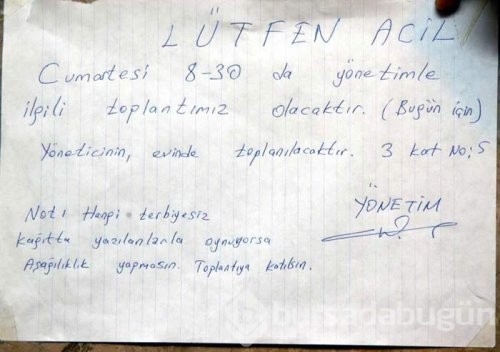 LÜTFEN ACİL
Cumartesi 8-30 da yönetimle
ilgili toplantımız olacaktır. (Bugün için)
Yöneticinin, evinde toplanılacaktır. 3 kat No:5
YÖNETİM
Not: Hangi terbiyesiz
kağıtta yazılanlarla oynuyorsa
Aşağılıklık yapmasın. Toplantıya katılsın.
bursadabugün